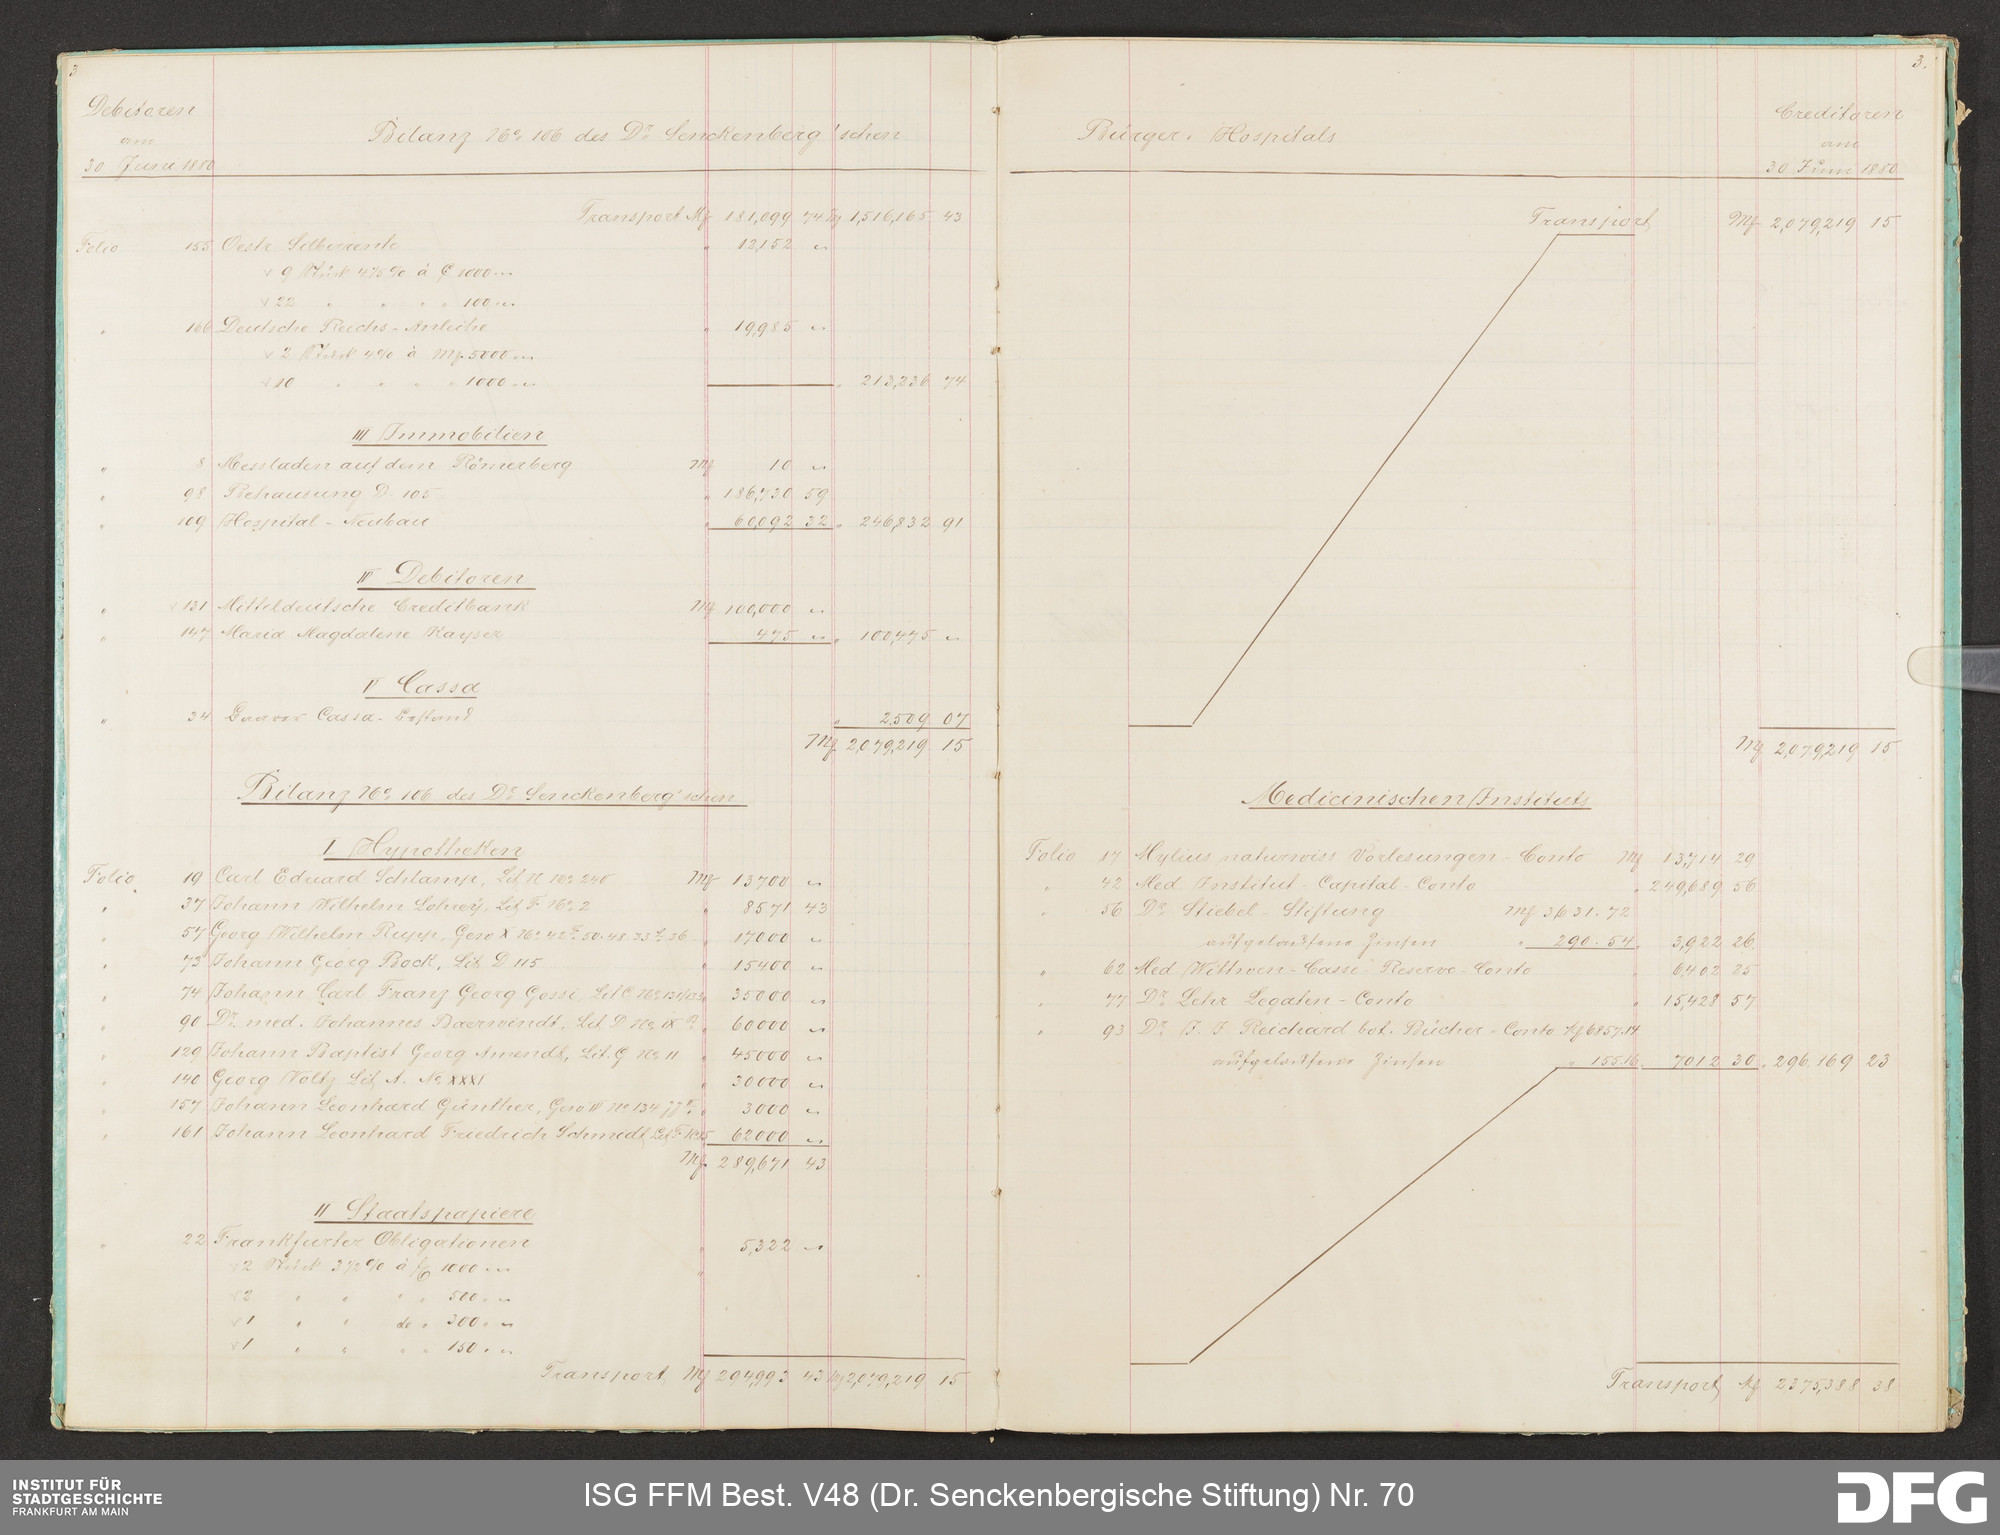 3
Debitoren
am
30 Juni 1880
Bilanz No 106 des Dr Senckenberg'schen
Transport Mf 181,099 74 Mf 1,516,165 43
Folio 155 Oestr. Silberrente " 12,152 "
9 Stück 4 1/5 % à f 1000 "
22 " " " " 100 "
" 166 Deutsche Reichs-Anleihe " 19,985 "
2 Stück 4% à Mf 5000 "
10 " " " " 1000 " " 213,236 74
III Immobilien
" 8 Messladen auf dem Römerberg Mf 10 "
" 98 Behausung D. 105 " 186,730 59
" 109 Hospital-Neubau " 60,092 32 " 246,832 91
IV Debitoren
" 131 Mitteldeutsche Creditbank Mf 100,000 "
" 147 Maria Magdalene Kayser 475 " " 100,475 "
V Cassa
" 34 Baarer Cassa-Bestand " 2,509 07
Mf 2,079,219 15
Bilanz No 106 des Dr Senckenberg'schen
I Hypotheken
Folio 19 Carl Eduard Schlamp, Lit. N No 240 Mf 13700 "
" 37 Johann Wilhelm Lohrey, Lit F No 2 " 8571 43
" 57 Georg Wilhelm Rupp, Gew X No 42 50.48 33 36 " 17000 "
" 73 Johann Georg Bock, Lit. D 115 " 15400 "
" 74 Johann Carl Franz Georg Gossi, Lit C No 131/133 35000 "
" 90 Dr. med. Johannes Baerwindt, Lit. D No IX " 60000 "
" 129 Johann Baptist Georg Amendt, Lit. G No 11 " 45000 "
" 140 Georg Voltz Lit. A. No XXXI " 30000 "
" 157 Johann Leonhard Günther, Gew IV No 134 " 3000 "
" 161 Johann Leonhard Friedrich Schmidt, Lit F No 15 62000 "
Mf 289,671 43
II Staatspapiere
" 22 Frankfurter Obligationen " 5,322 "
2 Stück 3 1/2 % à f 1000 "
2 " " " " 500 "
1 " " do " 300 "
1 " " " " 150 "
Transport Mf 294,993 43 Mf 2,079,219 15
3.
Bürger-Hospitals
Creditoren
am
30 Juni 1880
Transport Mf 2,079,219 15
Mf 2,079,219 15
Medicinischen Instituts
Folio 17 Mylius naturwiss Vorlesungen-Conto Mf 13,714 29
" 42 Med. Institut-Capital-Conto " 249,689 56
" 56 Dr. Stiebel-Stiftung Mf 3631.72
aufgelaufene Zinsen " 290.54 " 3,922 26
" 62 Med Wittwen-Casse Reserve-Conto " 6,402 25
" 77 Dr Lehr Legaten-Conto " 15,428 57
" 93 Dr J. J. Reichard bot. Bücher-Conto Mf 6857.14
aufgelaufene Zinsen " 155.16 " 7012 30 " 296,169 23
Transport Mf 2375,388 38
INSTITUT FÜR
STADTGESCHICHTE
FRANKFURT AM MAIN
ISG FFM Best. V48 (Dr. Senckenbergische Stiftung) Nr. 70
DFG